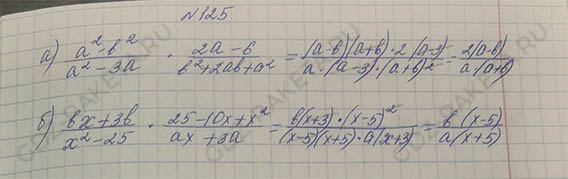 №125
а) (a² - b²)/(a² - 3a) · (2a - 6)/(b² + 2ab + a²) = ((a-b)(a+b)·2(a-3))/(a·(a-3)·(a+b)²) = 2(a-b)/a(a+b)
б) (bx + 3b)/(x² - 25) · (25 - 10x + x²)/(ax + 3a) = (b(x+3)·(x-5)²)/((x-5)(x+5)·a(x+3)) = b(x-5)/a(x+5)